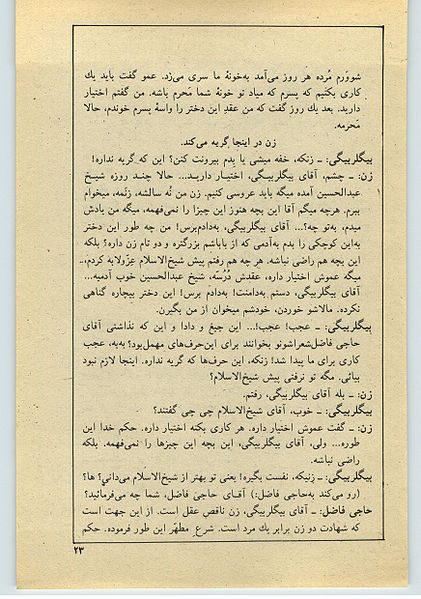 شوورم مُرده هر روز می‌آمد به‌خونهٔ ما سری می‌زد. عمو گفت باید یك
کاری بکنیم که پسرم که میاد تو خونهٔ شما مَحرم باشه. من گفتم اختیار
دارید. بعد یك روز گفت که من عقدِ این دختر را واسهٔ پسرم خوندم، حالا
مَحرمه.
زن در اینجا گریه می‌کند.
بیگلربیگی: ــ زنکه، خفه میشی یا بِدم بیرونت کنن؟ این که گریه نداره!
زن: ــ چشم، آقای بیگلربیگی، اختیـار داریـد... حالا چنـد روزه شیـخ
عبدالحسین آمده میگه باید عروسی کنیم. زن من نُه سالشه، زَنَمه، میخوام
ببرم. هرچه میگم آقا این بچه هنوز این چیزا را نمی‌فهمه، میگه من یادش
میدم، به‌تو چه؟... آقای بیگلربیگی، به‌دادم‌برس! من چه طور این دختر
به‌این کوچکی را بدم به‌آدمی که از باباشم بزرگتره و دو تام زن داره؟ بلکه
این بچه هم راضی نباشه. هر چه هم رفتم پیش شیخ‌الاسلام عِزّولابه کردم،ـ
میگه عموش اختیار داره، عقدش دُرُسّه، شیخ عبدالحسین خوب آدمیه...
آقای بیگلربیگی، دستم به‌دامنت! به‌دادم برس! این دختر بیچاره گناهی
نکرده. مالاشو خوردن، خودشم میخوان از من بگیرن.
بیگلربیگی: ــ عجب! عجب!... این جیغ و دادا و این که نذاشتی آقای
حاجی فاضل‌شعراشونو بخوانند برای این‌حرف‌های مهمل‌بود؟ به‌به، عجب
کاری برای ما پیدا شد! زنکه، این حرف‌ها که گریه نداره. اینجا لازم نبود
بیائی. مگه تو نرفتی پیش شیخ‌الاسلام؟
زن: ــ بله آقای بیگلربیگی، رفتم.
بیگلربیگی: ــ خوب، آقای شیخ‌الاسلام چی چی گفتند؟
زن: ــ گفت عموش اختیار داره. هر کاری بکنه اختیار داره. حکم خدا این
طوره... ولی، آقای بیگلربیگی، این بچه این چیزها را نمی‌فهمه. بلکه
راضی نباشه.
بیگلربیگی: ــ زنیکه، نفست بگیره! یعنی تو بهتر از شیخ‌الاسلام می‌دانی؟ ها؟
(رو می‌کند به‌حاجی فاضل:) آقـای حاجی فاضل، شما چه می‌فرمائید؟
حاجی فاضل: ــ آقای بیگلربیگی، زن ناقصِ عقل است. از این جهت است
که شهادت دو زن برابر یك مرد است. شرعِ مطهّر این طور فرموده. حکم
۲۳